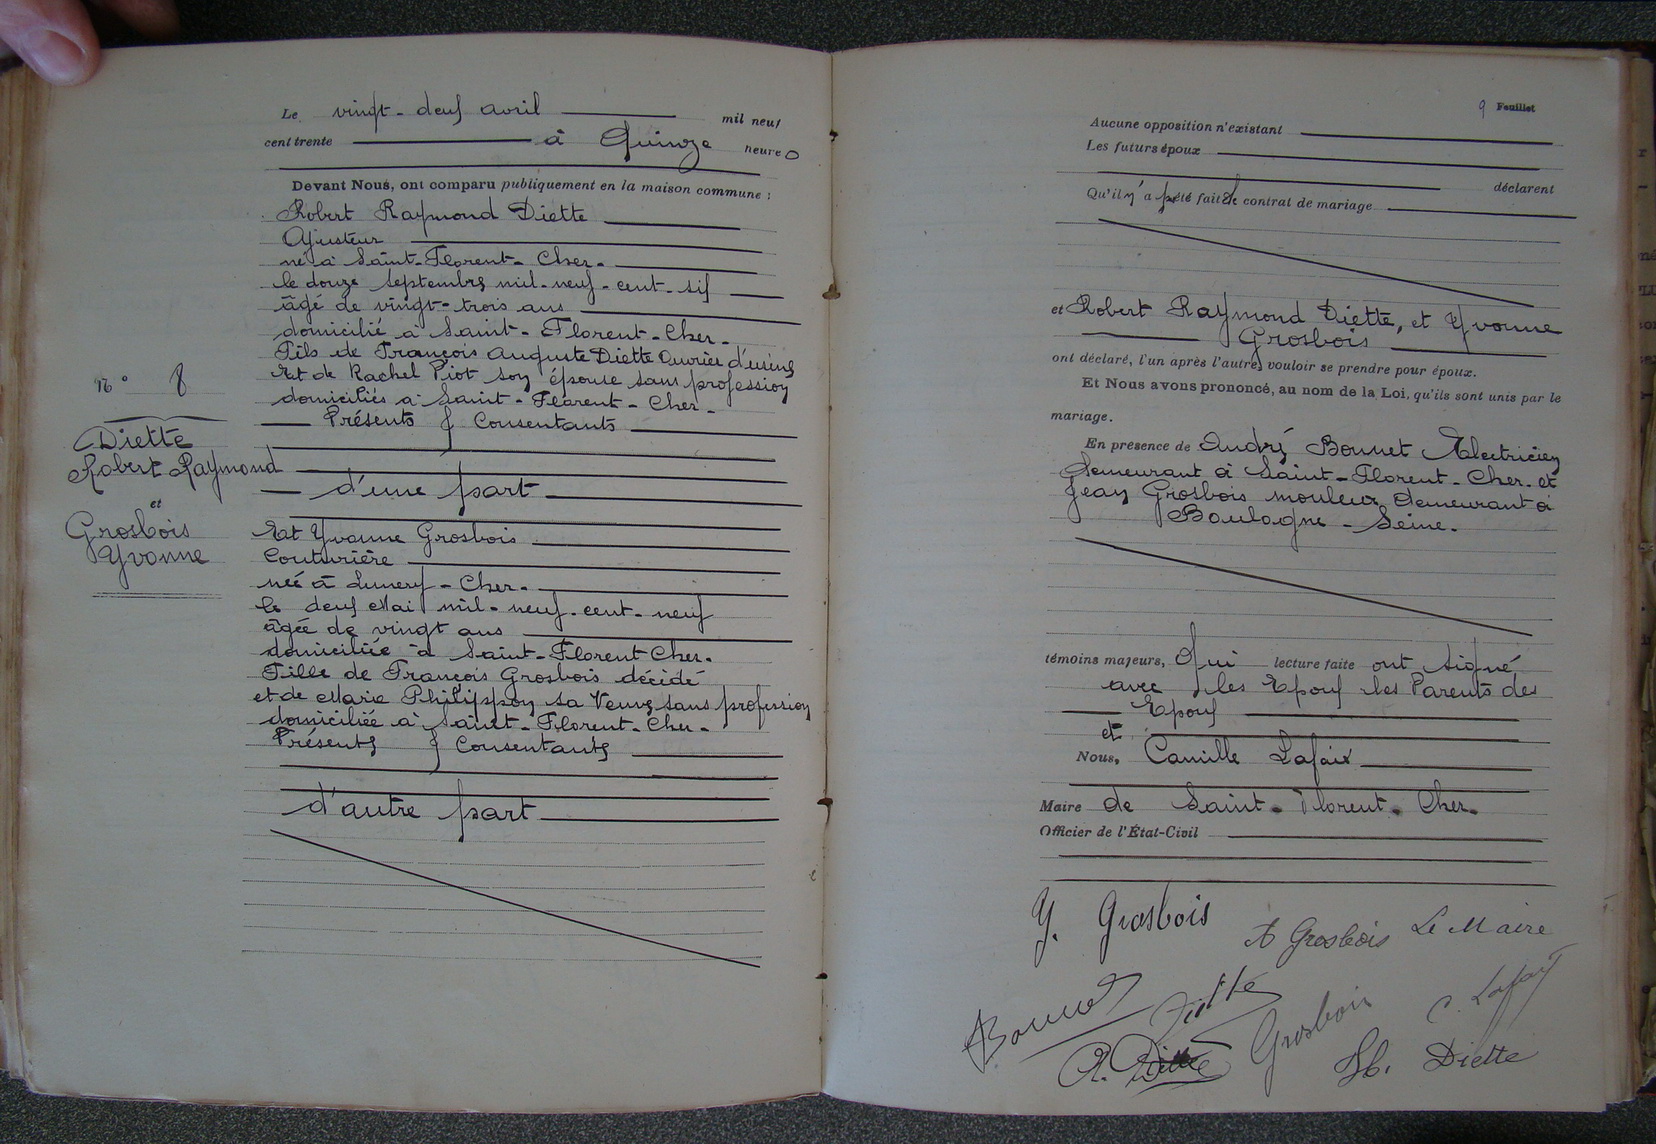 Le vingt-deux avril mil neuf
cent trente à Quinze heures
Devant Nous, ont comparu publiquement en la maison commune :
Robert Raymond Diette
Ajusteur
né à Saint-Florent-Cher-
le douze septembre mil-neuf-cent-six
âgé de vingt-trois ans
domicilié à Saint-Florent-Cher-
Fils de François Auguste Diette Ouvrier d'usine
Et de Rachel Piot son épouse sans profession
domiciliés à Saint-Florent-Cher-
Présents & Consentants
d'une part
N° 8
Diette
Robert Raymond
et
Grosbois
Yvonne
Et Yvonne Grosbois
Couturière
née à Lunery-Cher-
le deux Mai mil-neuf-cent-neuf
âgée de vingt ans
domiciliée à Saint-Florent Cher.
Fille de François Grosbois décédé
et de Marie Philippon sa Veuve sans profession
domiciliée à Saint-Florent-Cher-
Présents & Consentants
d'autre part
9 Feuillet
Aucune opposition n'existant
Les futurs époux
déclarent
Qu'il n'a p. été fait de contrat de mariage
et Robert Raymond Diette, et Yvonne
Grosbois
ont déclaré, l'un après l'autre, vouloir se prendre pour époux.
Et Nous avons prononcé, au nom de la Loi, qu'ils sont unis par le
mariage.
En présence de André Bonnet Electricien
demeurant à Saint-Florent-Cher- et
Jean Grosbois mouleur demeurant à
Boulogne-Seine-
témoins majeurs, Qui lecture faite ont signé
avec les Epoux les Parents des
Epoux
et
Nous, Camille Lafaix
Maire de Saint-Florent-Cher-
Officier de l'État-Civil
Y. Grosbois
Grosbois Le Maire
Bonnet Diette Grosbois C. Lafaix
R. Diette Diette